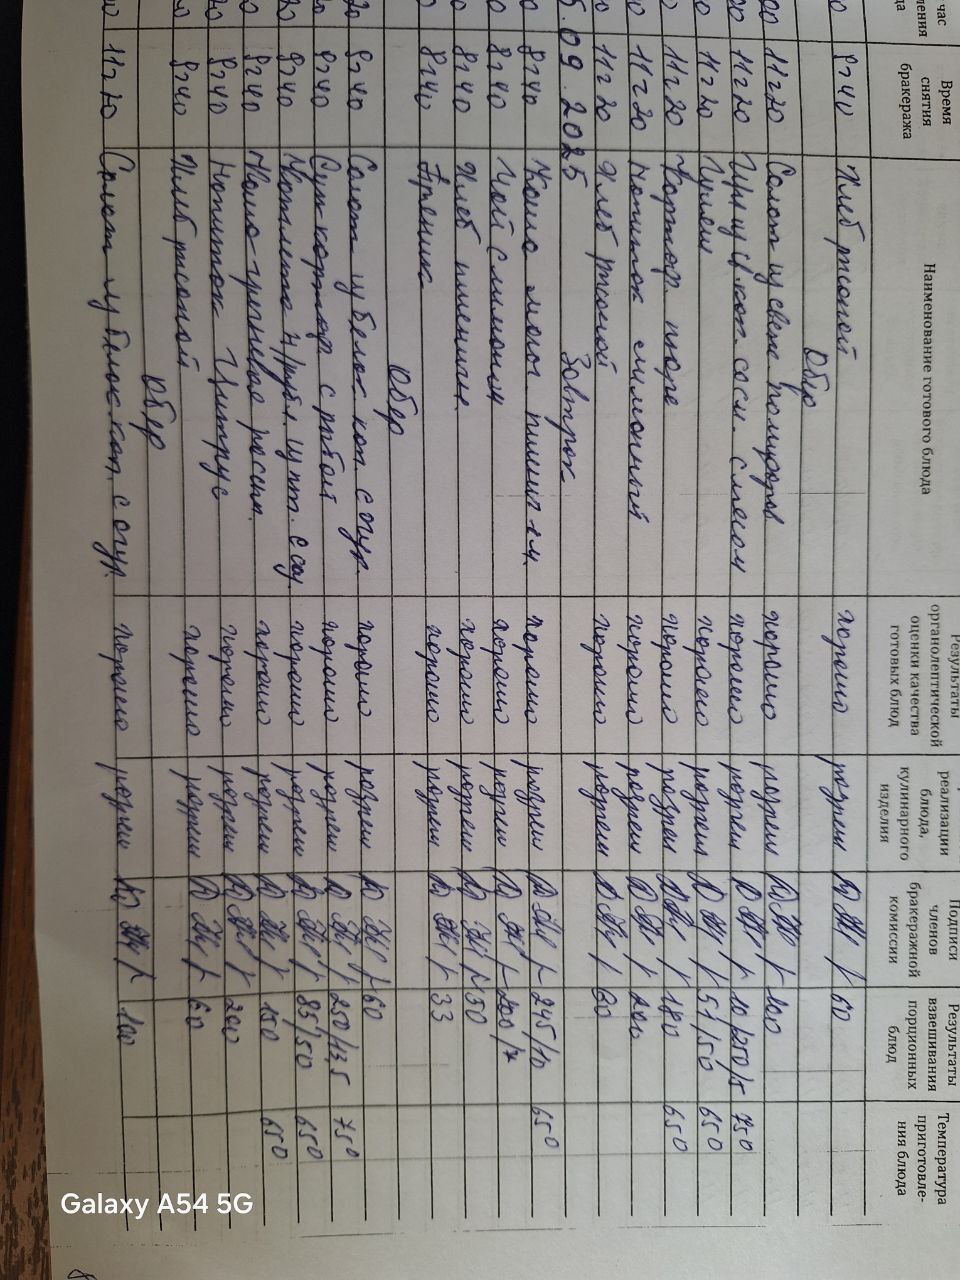 час
Время снятия бракеража
Наименование готового блюда
Результаты органолептической оценки качества готовых блюд
реализации блюда, кулинарного изделия
Подписи членов бракеражной комиссии
Результаты взвешивания порционных блюд
Температура приготовле-ния блюда
8 40 Хлеб ржаной хорошо разреш 60
Обед
11 20 Салат из свеж помидоров хорошо разреш 100
11 20 Щи из кап. со см. с мясом хорошо разреш 10/250/5 75°
11 20 Гуляш хорошо разреш 51/50 65°
11 20 Картоф пюре хорошо разреш 180 65°
11 20 Напиток лимонный хорошо разреш 200
11 20 Хлеб ржаной хорошо разреш 60
5.09.2025 Завтрак
8 40 Каша мол. хорошо разреш 245/10 65°
8 40 Чай с лимоном хорошо разреш 200/7
8 40 Хлеб пшенич. хорошо разреш 30
8 40 Пряник хорошо разреш 33
Обед
8 40 Салат из белок кап. с огур. хорошо разреш 60
8 40 Суп картоф с рыбой хорошо разреш 250/135 75°
8 40 Котлета хорошо разреш 85/50 65°
8 40 Каша гречневая рассып. хорошо разреш 150 65°
8 40 Напиток Цитрус хорошо разреш 200
8 40 Хлеб ржаной хорошо разреш 60
Обед
11 20 Салат из белок кап. с огур. хорошо разреш 100
Galaxy A54 5G